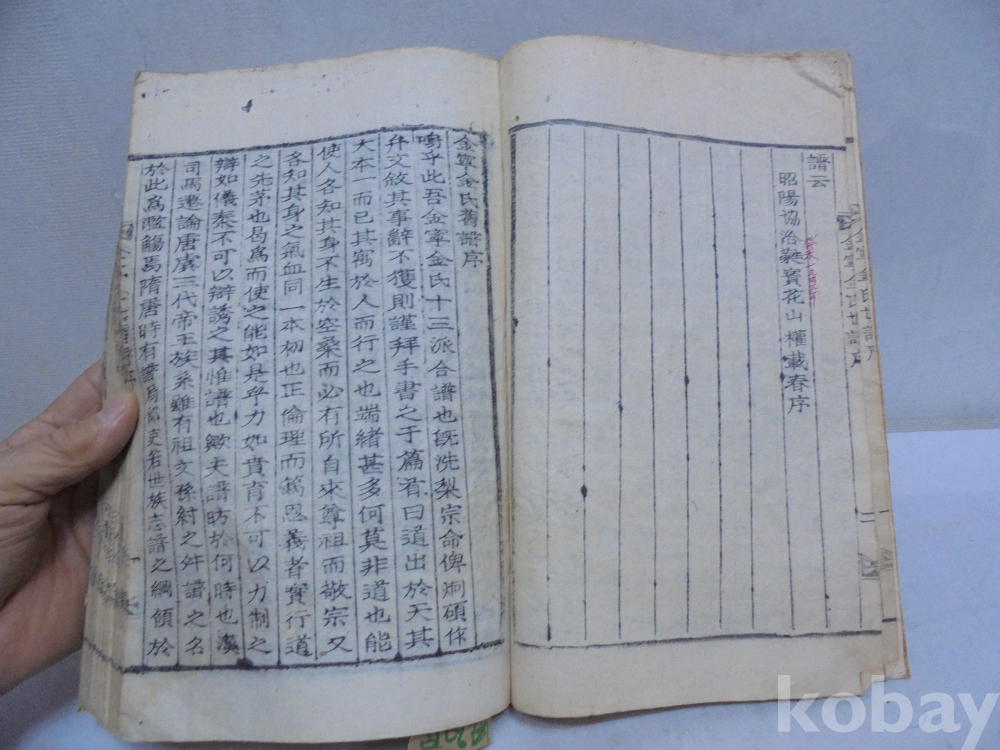 譜云
昭陽協洽蕤賓花山權載春序
金寧金氏世譜序
金寧金氏舊譜序
嗚乎此吾金寧金氏十三派合譜也旣洗梨宗命俾炯碩作
弁文敘其事辭不獲則謹拜手書之于篇首曰道出於天其
大本一而已其寓於人而行之也端緖甚多何莫非道也能
使人各知其身不生於空桑而必有所自來尊祖而敬宗又
各知其身之氣血同一本初也正倫理而篤恩義者實行道
之先茅也曷爲而使之能如是乎力如賁育不可以力制之
辯如儀秦不可以辯誘之其惟譜也歟夫譜昉於何時也漢
司馬遷論唐虞三代帝王族系雖有祖文孫紂之舛譜之名
於此爲濫觴焉隋唐時有譜局 若世族志譜之綱領於
kobay